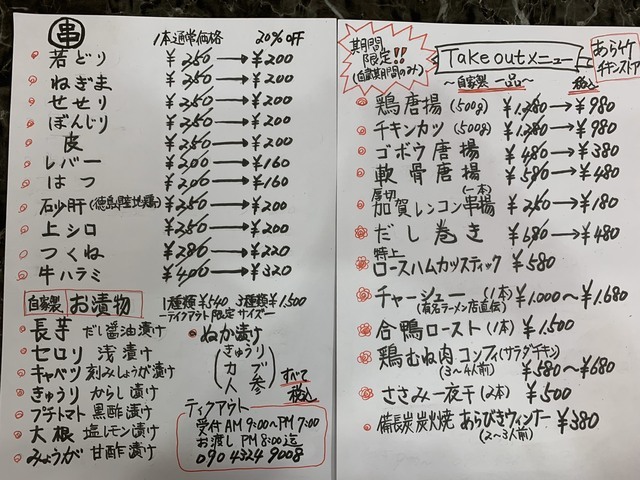 串 1本通常価格 20%OFF
若どり ¥250→¥200
ねぎま ¥250→¥200
せせり ¥250→¥200
ぼんじり ¥250→¥200
皮 ¥250→¥200
レバー ¥200→¥160
はつ ¥200→¥160
砂肝(徳島県産地鶏) ¥250→¥200
上シロ ¥250→¥200
つくね ¥280→¥220
牛ハラミ ¥400→¥320
自家製 お漬物 1種類¥540 3種類¥1,500
ーテイクアウト限定サイズー
長芋 だし醤油漬け
セロリ 浅漬け
キャベツ 刻みしょうが漬け
きゅうり からし漬け
プチトマト 黒酢漬け
大根 塩レモン漬け
みょうが 甘酢漬け
ぬか漬け
(きゅうり
カブ
人参)
すべて
税込
テイクアウト
受付AM9:00~PM7:00
お渡しPM8:00迄
090 4324 9008
期間
限定!!
(自粛期間のみ)
Take outメニュー
あらケ
チキンストア
~自家製 一品~
税込
鶏唐揚(500g) ¥1,280→¥980
チキンカツ(500g) ¥1,280→¥980
ゴボウ唐揚 ¥480→¥380
軟骨唐揚 ¥580→¥480
厚切 (一本)
加賀レンコン串揚 ¥250→¥180
だし巻き ¥680→¥480
特上
ロースハムカツスティック ¥580
チャーシュー(1本) ¥1,000~¥1,680
(有名ラーメン店直伝)
合鴨ロースト(1本) ¥1,500
鶏むね肉コンフィ(サラダチキン)
(3~4人前) ¥580~¥680
ささみ一夜干(2本) ¥500
備長炭炭火焼 あらびきウィンナー ¥380
(2~3人前)